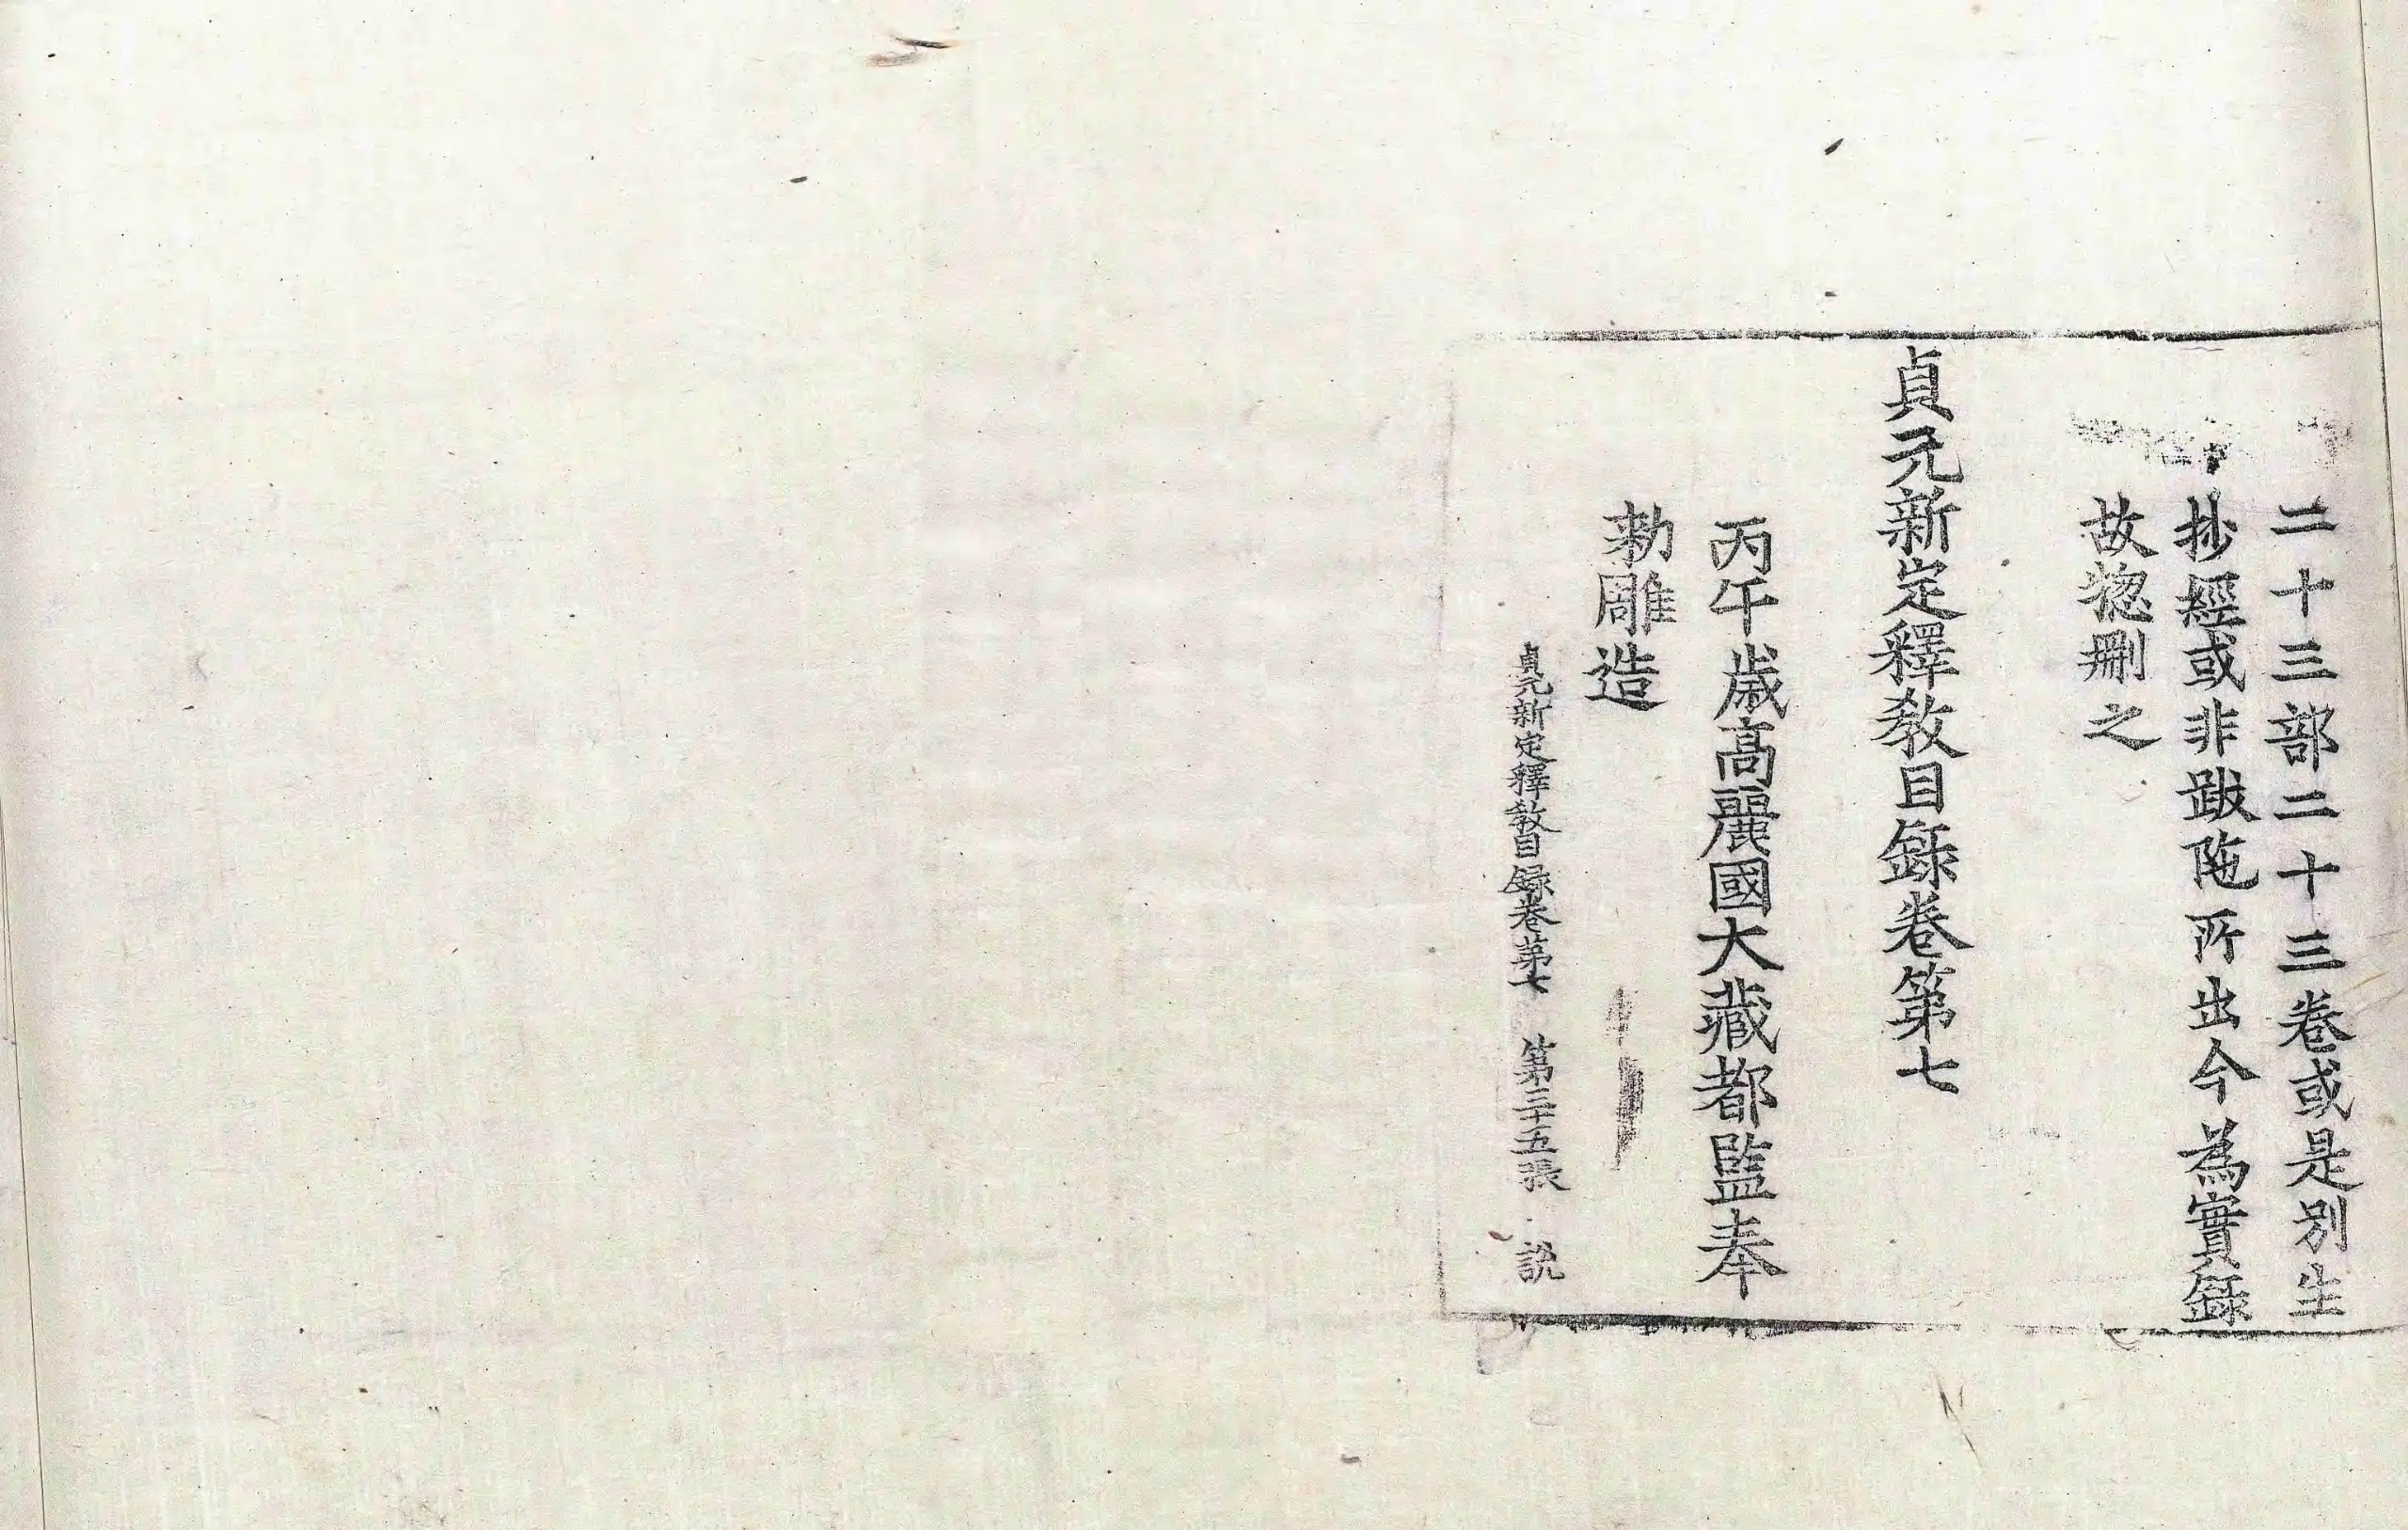 二十三部二十三卷或是別生
抄經或非跋陁所出今為實錄
故揔刪之
貞元新定釋教目錄卷第七
丙午歲高麗國大藏都監奉
勑雕造
貞元新定釋教目錄卷第七 第三十五張 說